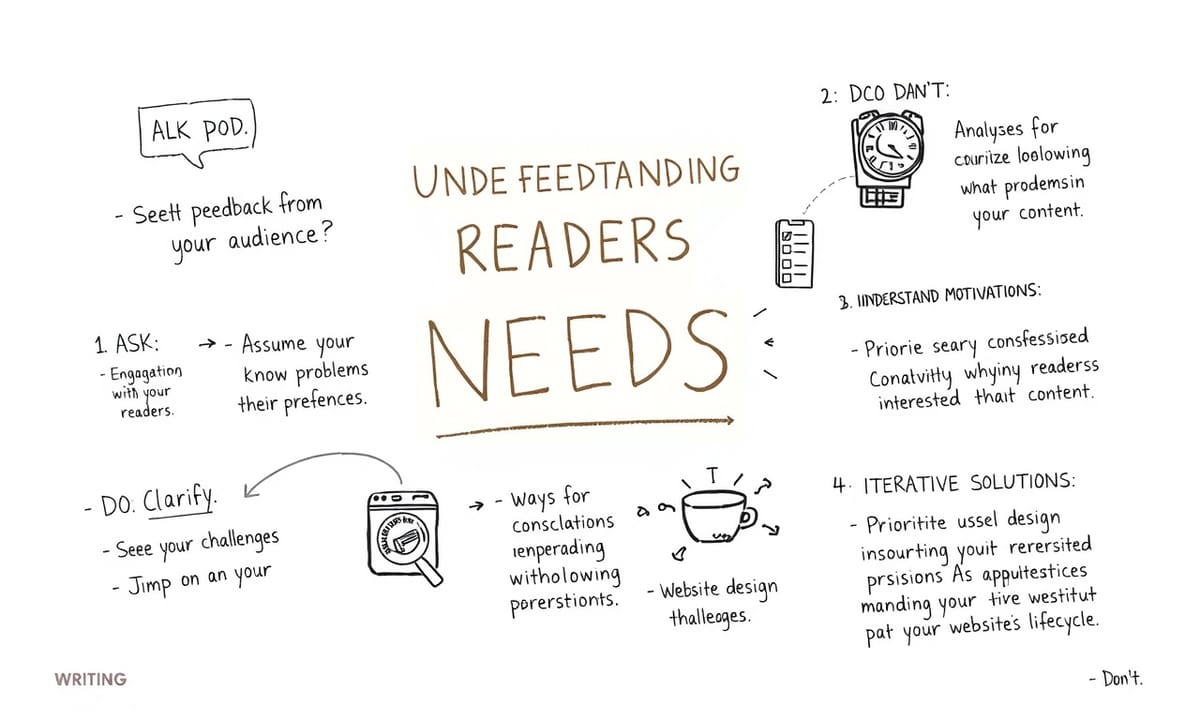 ALK POD.
- Seett peedback from
your audience?
UNDE FEEDTANDING
READERS
NEEDS
1. ASK:
- Engagation
with your
readers.
→ - Assume your
know problems
their prefences.
- DO: Clarify.
- Seee your challenges
- Jimp on an your
→ - Ways for
consclations
ienperading
witholowing
porerstionts.
T
- Website design
thalleages.
2: DCO DAN'T:
Analyses for
couriize loolowing
what prodemsin
your content.
3. IINDERSTAND MOTIVATIONS:
- Priorie seary consfessised
Conatvitty whyiny readerss
interested thait content.
4. ITERATIVE SOLUTIONS:
- Prioritite ussel design
insourting youit rerersited
prsisions As appultestices
manding your tive westitut
pat your website's lifecycle.
WRITING
- Don't.